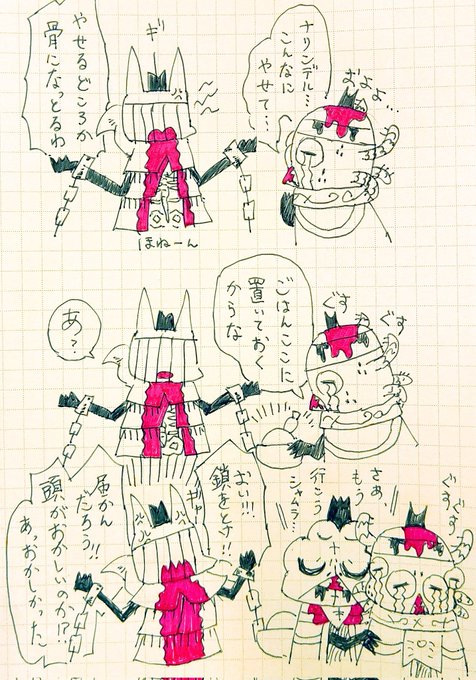 ナリンデル…
こんなに
やせて…
およよ…
ギ
やせるどころか
骨になっとるわ
ほねーん
ぐす
ぐす
ごはんここに
置いておく
からな
あ？
ぐすぐす
さあ、
もう
行こう
シャムラ…
おい!!!
鎖をとけ!!
ギャ
届かん
だろう!!
頭がおかしいのか!?
あっおかしかった